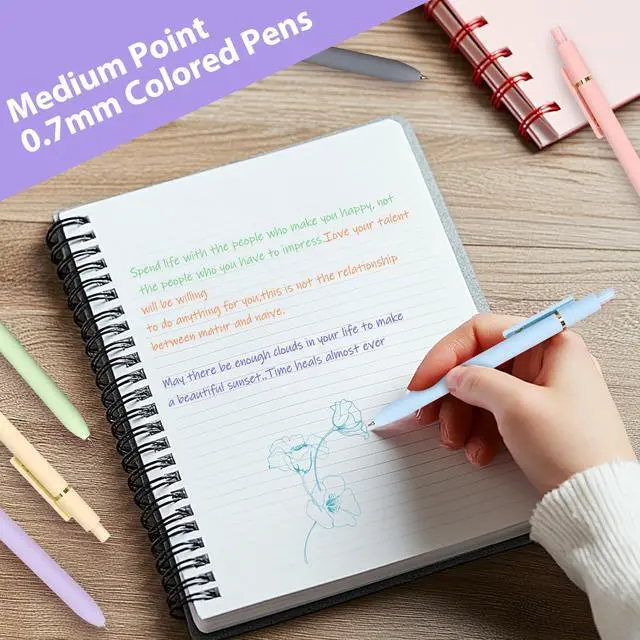 Medium Point
0.7mm Colored Pens
Spend life with the people who make you happy, not
the people who you have to impress.Iave your talent
will be willing
to do anything for you,this is not the relationship
between matur and naive.
May there be enough clouds in your life to make
a beautiful sunset..Time heals almost ever